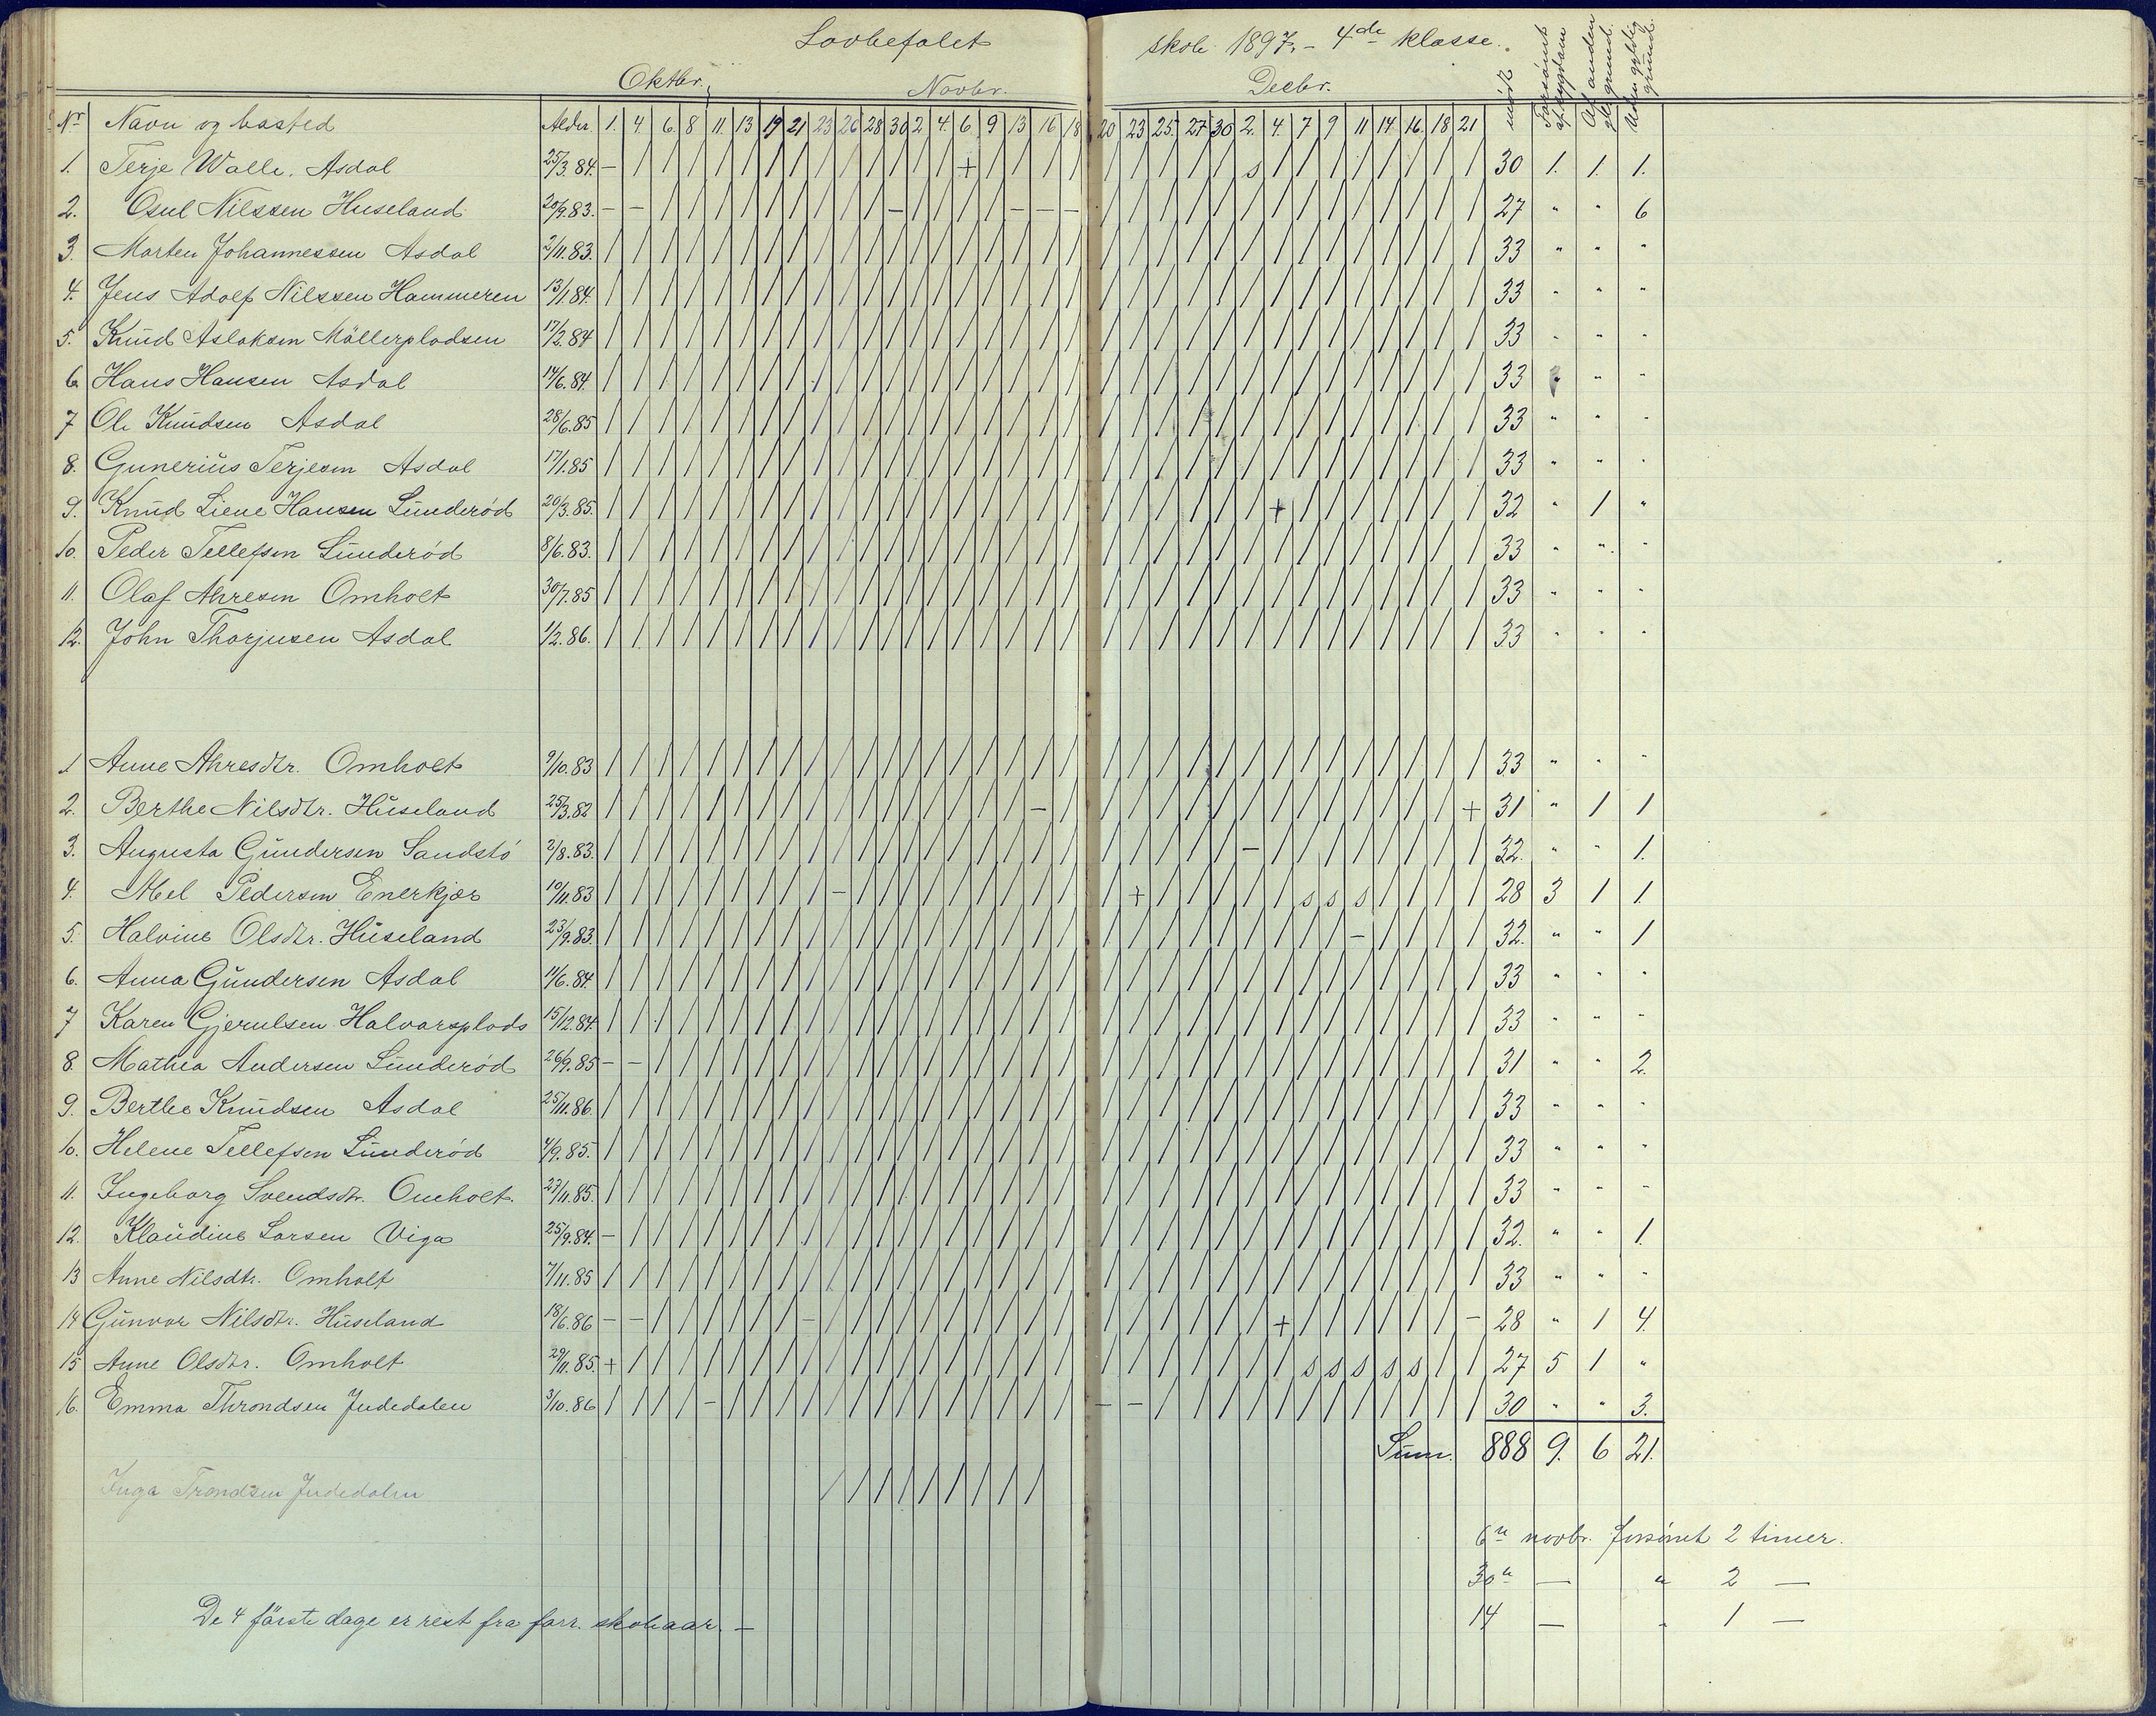 Lovbefalet skole 1897. - 4de klasse.
Oktbr. Novbr. Decbr.
Nr Navn og bosted Alder. 1. 4. 6. 8 11. 13 19 21 23 26 28 30 2 4. 6. 9 13 16 18 20 23 25. 27 30 2. 4. 7 9 11 14 16. 18 21 mødt Forsømt af sygdom Af anden gl. grund. Uden gyldig grund.
1. Terje Walle. Asdal 25/3.84. – / / / / / / / / / / / / / + / / / / / / / / / s / / / / / / / / 30 1. 1. 1.
2. Osul Nilssen Huseland 20/9.83. – – / / / / / / / / / – / / / / – – – / / / / / / / / / / / / / / 27 " " 6
3. Morten Johannessen Asdal 2/11.83. / / / / / / / / / / / / / / / / / / / / / / / / / / / / / / / / / 33 " " "
4. Jens Adolf Nilssen Hammeren 13/1.84. / / / / / / / / / / / / / / / / / / / / / / / / / / / / / / / / / 33 " " "
5. Knud Aslaksen Möllerpladsen 17/2.84 / / / / / / / / / / / / / / / / / / / / / / / / / / / / / / / / / 33 " " "
6. Hans Hansen Asdal 14/6.84. / / / / / / / / / / / / / / / / / / / / / / / / / / / / / / / / / 33 " " "
7 Ole Knudsen Asdal 28/6.85 / / / / / / / / / / / / / / / / / / / / / / / / / / / / / / / / / 33 " " "
8. Gunerius Terjesen Asdal 17/1.85 / / / / / / / / / / / / / / / / / / / / / / / / / / / / / / / / / 33 " " "
9. Knud Liene Hansen Lunderød 20/3.85. / / / / / / / / / / / / / / / / / / / / / / / / / + / / / / / / / 32 " 1 "
10. Peder Tellefsen Lunderød 8/6.83. / / / / / / / / / / / / / / / / / / / / / / / / / / / / / / / / / 33 " " "
11. Olaf Ahresen Omholt 30/7.85 / / / / / / / / / / / / / / / / / / / / / / / / / / / / / / / / / 33 " " "
12. John Thorjusen Asdal 1/2.86. / / / / / / / / / / / / / / / / / / / / / / / / / / / / / / / / / 33 " " "
1 Anne Ahresdtr. Omholt 9/10.83 / / / / / / / / / / / / / / / / / / / / / / / / / / / / / / / / / 33 " " "
2. Berthe Nilsdtr. Huseland 25/3.82 / / / / / / / / / / / / / / / / / – / / / / / / / / / / / / / / + 31 " 1 1
3. Augusta Gundersen Sandstö 2/8.83. / / / / / / / / / / / / / / / / / / / / / / / / – / / / / / / / / 32. " " 1.
4. Abel Pedersen Enerkjær 10/11.83 / / / / / / / / / – / / / / / / / / / / + / / / / / s s s / / / / 28 3 1 1
5. Halvine Olsdtr. Huseland 23/9.83. / / / / / / / / / / / / / / / / / / / / / / / / / / / / – / / / / 32. " " 1
6. Anna Gundersen Asdal 11/6.84. / / / / / / / / / / / / / / / / / / / / / / / / / / / / / / / / / 33 " " "
7 Karen Gjerulsen Halvorsplads 15/12.84. / / / / / / / / / / / / / / / / / / / / / / / / / / / / / / / / / 33 " " "
8 Mathea Andersen Lunderød 26/9.85 – – / / / / / / / / / / / / / / / / / / / / / / / / / / / / / / / 31 " " 2.
9. Berthe Knudsen Asdal 25/11.86. / / / / / / / / / / / / / / / / / / / / / / / / / / / / / / / / / 33 " " "
10. Helene Tellefsen Lunderød 4/9.85. / / / / / / / / / / / / / / / / / / / / / / / / / / / / / / / / / 33 " " "
11. Ingeborg Svendsdtr. Omholt. 23/11.85. / / / / / / / / / / / / / / / / / / / / / / / / / / / / / / / / / 33 " " "
12. Klaudine Larsen Viga 25/9.84. – / / / / / / / / / / / / / / / / / / / / / / / / / / / / / / / / 32. " " 1.
13 Anne Nilsdtr. Omholt 7/11.85 / / / / / / / / / / / / / / / / / / / / / / / / / / / / / / / / / 33 " " "
14 Gunvor Nilsdtr. Huseland 18/6.86 – – / / / / / / – / / / / / / / / / / / / / / / / + / / / / / / – 28 " 1 4.
15 Anne Olsdtr. Omholt 29/11.85. + / / / / / / / / / / / / / / / / / / / / / / / / / s s s s s / / 27 5 1 "
16. Emma Throndsen Judedalen 3/10.86 / / / / – / / / / / / / / / / / / / / – – / / / / / / / / / / / / 30 " " 3.
Sum. 888 9. 6 21.
Inga Trondsen Judedalen / / / / / / / / /
6te novbr. forsömt 2 timer.
30te — " 2 —
De 4 förste dage er rest fra forr. skoleaar. —
14 — " 1 —